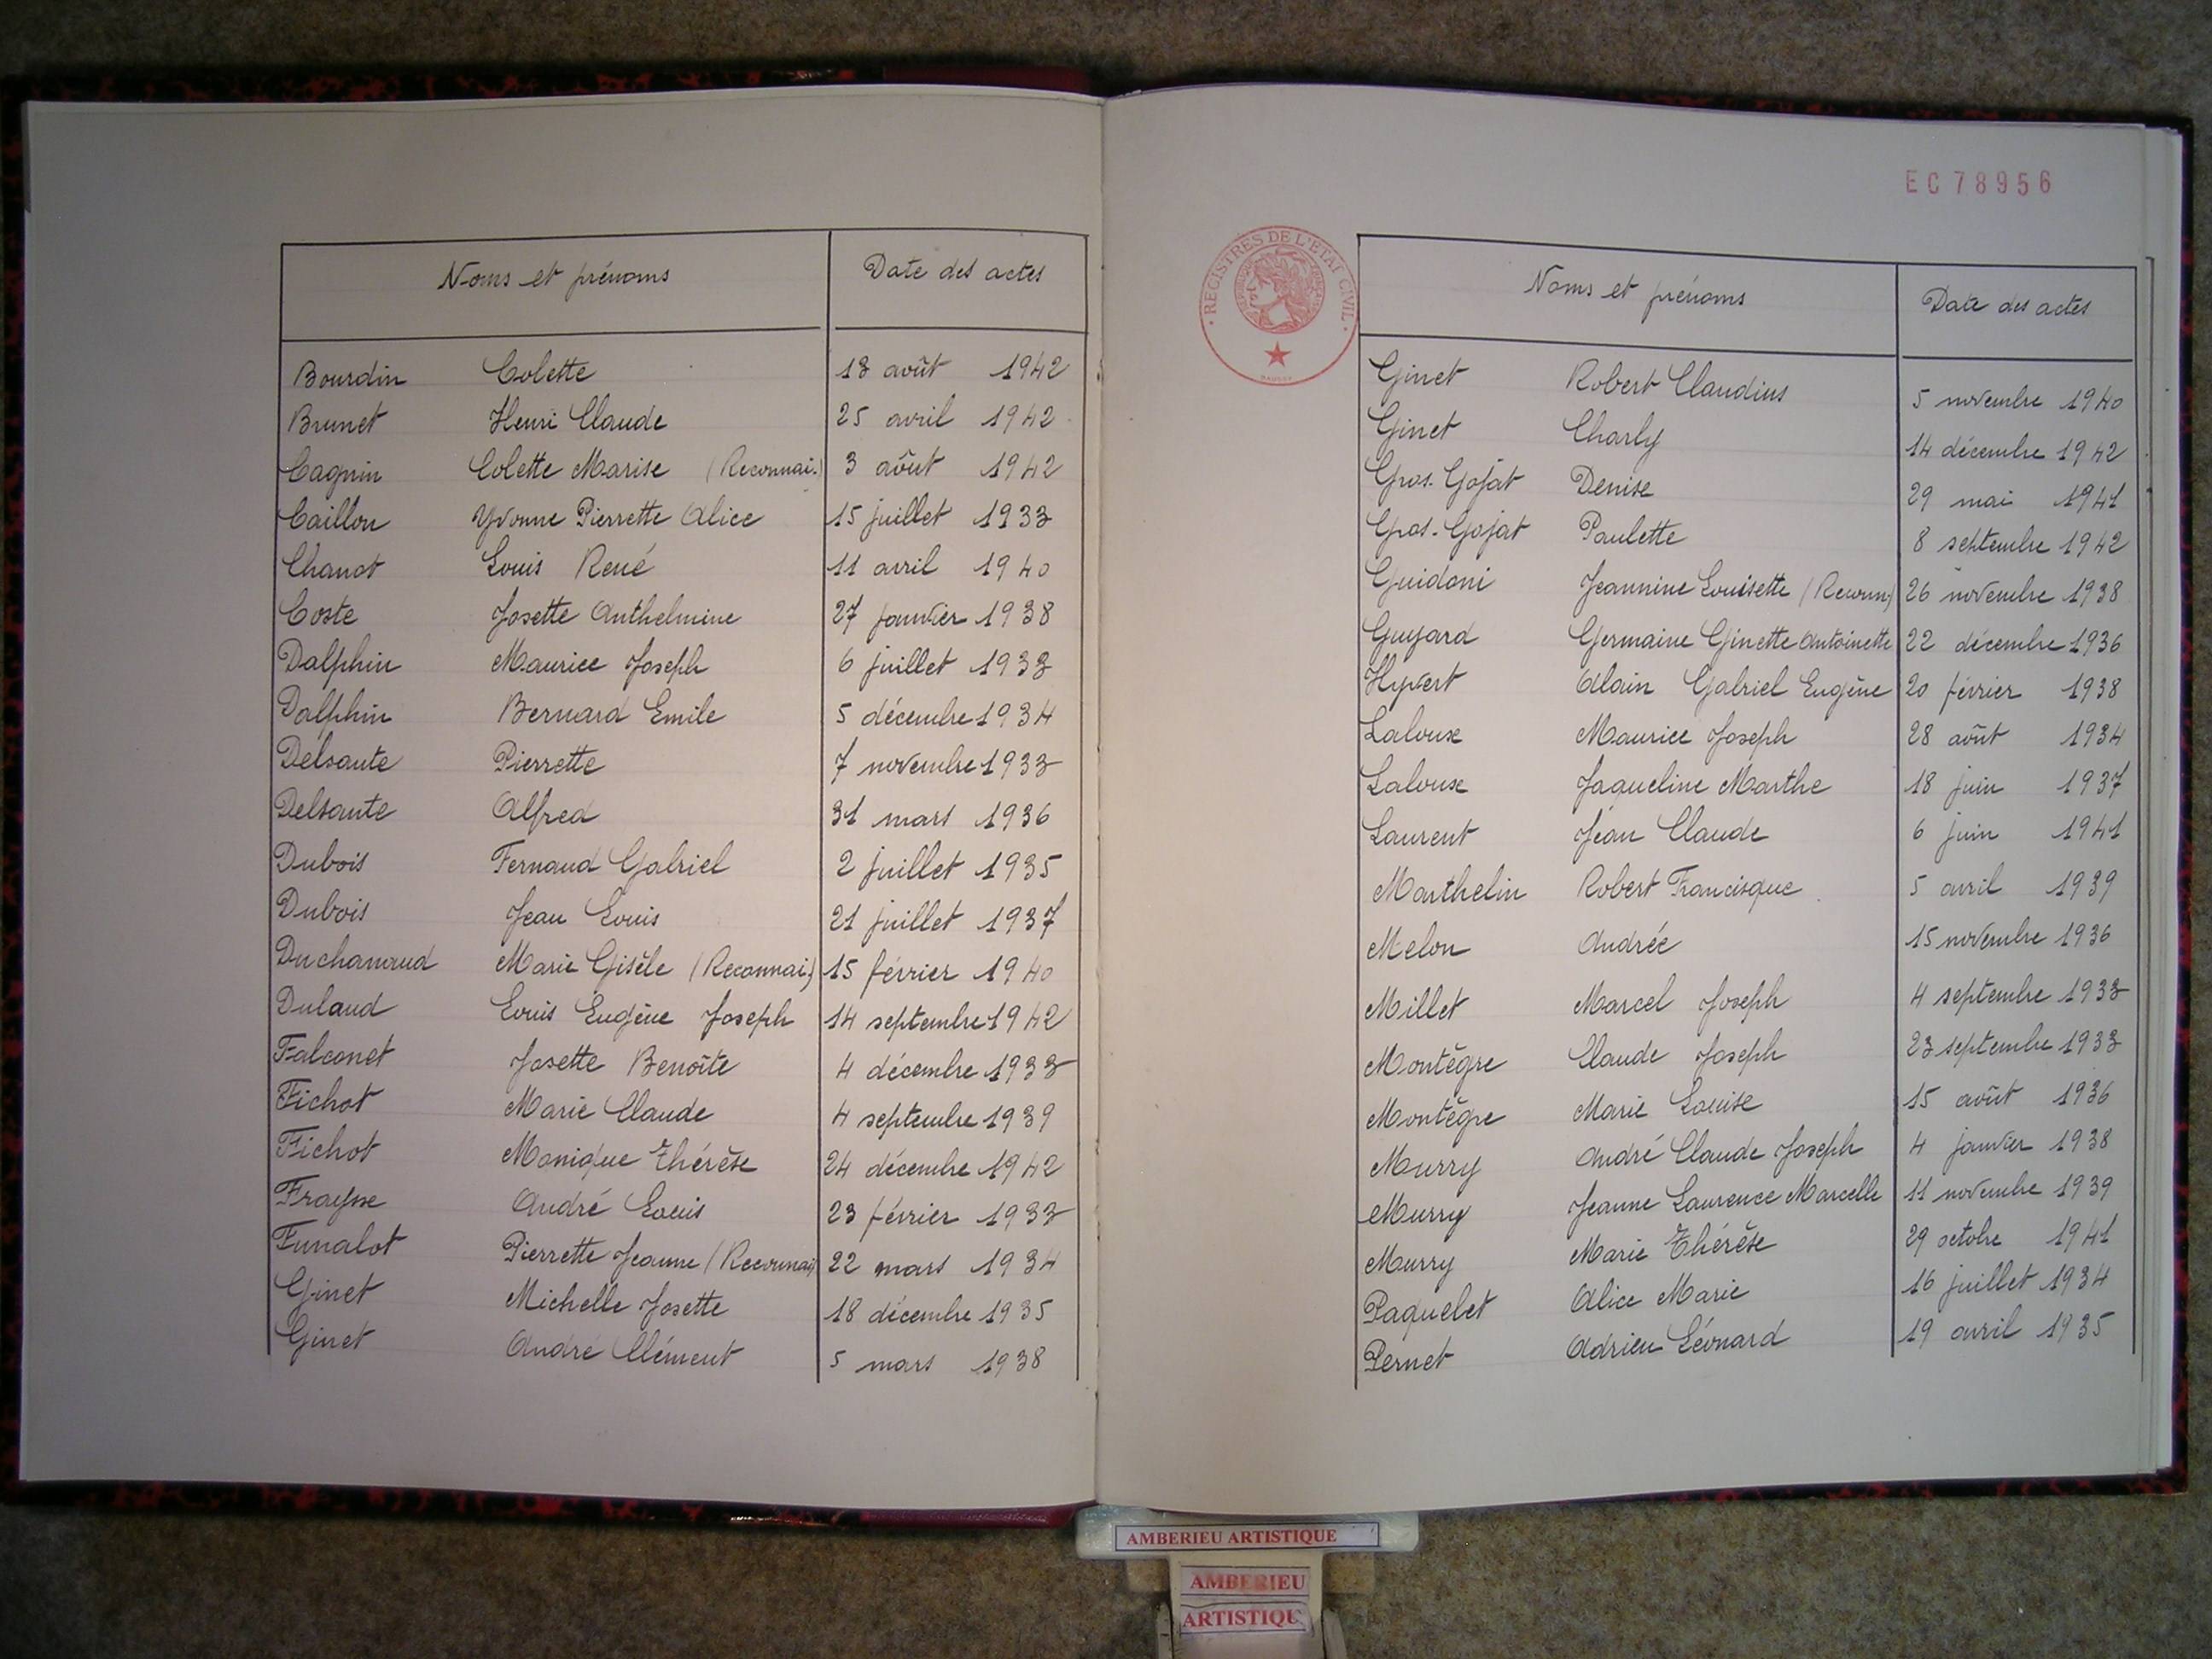 Noms et prénoms Date des actes
Bourdin Colette 13 août 1942
Brunet Henri Claude 25 avril 1942
Cagnin Colette Marise (Reconnai.) 3 août 1942
Caillon Yvonne Pierrette Alice 15 juillet 1933
Chanot Louis René 11 avril 1940
Coste Josette Anthelmine 27 janvier 1938
Dalphin Maurice Joseph 6 juillet 1933
Dalphin Bernard Emile 5 décembre 1934
Delsante Pierrette 7 novembre 1933
Delsante Alfred 31 mars 1936
Dubois Fernand Gabriel 2 juillet 1935
Dubois Jean Louis 21 juillet 1937
Duchanaud Marie Gisèle (Reconnai.) 15 février 1940
Dulaud Louis Eugène Joseph 14 septembre 1942
Falconet Josette Benoîte 4 décembre 1933
Fichot Marie Claude 4 septembre 1939
Fichot Monique Thérèse 24 décembre 1942
Fraysse André Louis 23 février 1933
Funalot Pierrette Jeanne (Reconnai) 22 mars 1934
Ginet Michelle Josette 18 décembre 1935
Ginet André Clément 5 mars 1938
EC78956
REGISTRES DE L'ÉTAT CIVIL
Noms et prénoms Date des actes
Ginet Robert Claudius 5 novembre 1940
Ginet Charly 14 décembre 1942
Gros-Gojat Denise 29 mai 1941
Gros-Gojat Paulette 8 septembre 1942
Guidoni Jeannine Louisette (Reconn.) 26 novembre 1938
Guyard Germaine Ginette Antoinette 22 décembre 1936
Hyvert Alain Gabriel Eugène 20 février 1938
Laloux Maurice Joseph 28 août 1934
Laloux Jaqueline Marthe 18 juin 1937
Laurent Jean Claude 6 juin 1941
Marthelin Robert Francisque 5 avril 1939
Melon Andrée 15 novembre 1936
Millet Marcel Joseph 4 septembre 1933
Montègre Claude Joseph 23 septembre 1933
Montègre Marie Louise 15 août 1936
Murry André Claude Joseph 4 janvier 1938
Murry Jeanne Laurence Marcelle 11 novembre 1939
Murry Marie Thérèse 29 octobre 1941
Paquelet Alice Marie 16 juillet 1934
Pernet Adrien Léonard 19 avril 1935
AMBERIEU ARTISTIQUE
AMBERIEU
ARTISTIQU